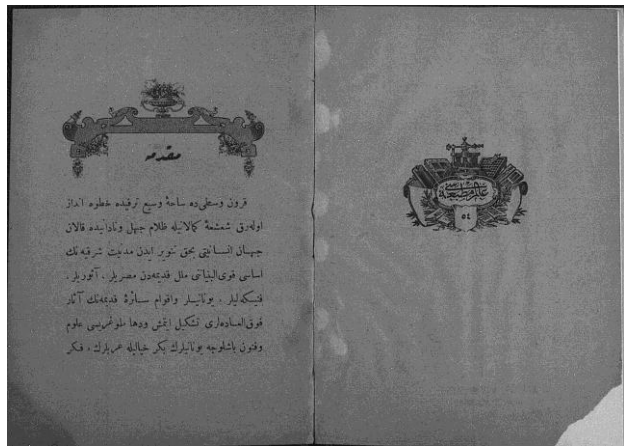 مقدمه
قرون وسطى‌ده ساحهٔ وسيع ترقيده خطوه انداز
اوله‌رق شعشعهٔ كمالاتيله ظلام جهل ونادانيده قالان
جهان انسانيتى بحق تنوير ايدن مدنيت شرقيه‌نك
اساسى قوى البنيانى ملل قديمه‌دن مصريلر ، آثوريلر ،
فنيكه‌ليلر ، يونانيلر واقوام سائرهٔ قديمه‌نك آثار
فوق العاده‌لرى تشكيل ايتمش ودها طوغريسى علوم
وفنون باشلوجه يونانيلرك بكر خياليله عربلرك ، فكر
عالم مطبعه‌سى
٥٤